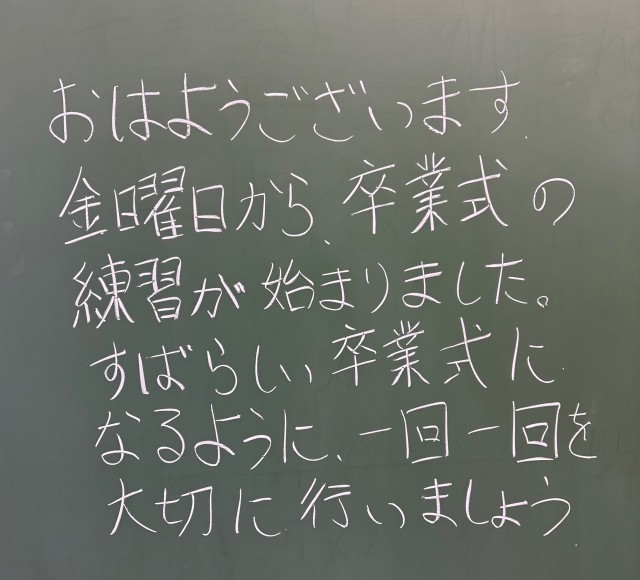 おはようございます.
金曜日から、卒業式の
練習が始まりました。
すばらしい卒業式に
なるように、一回一回を
大切に行いましょう